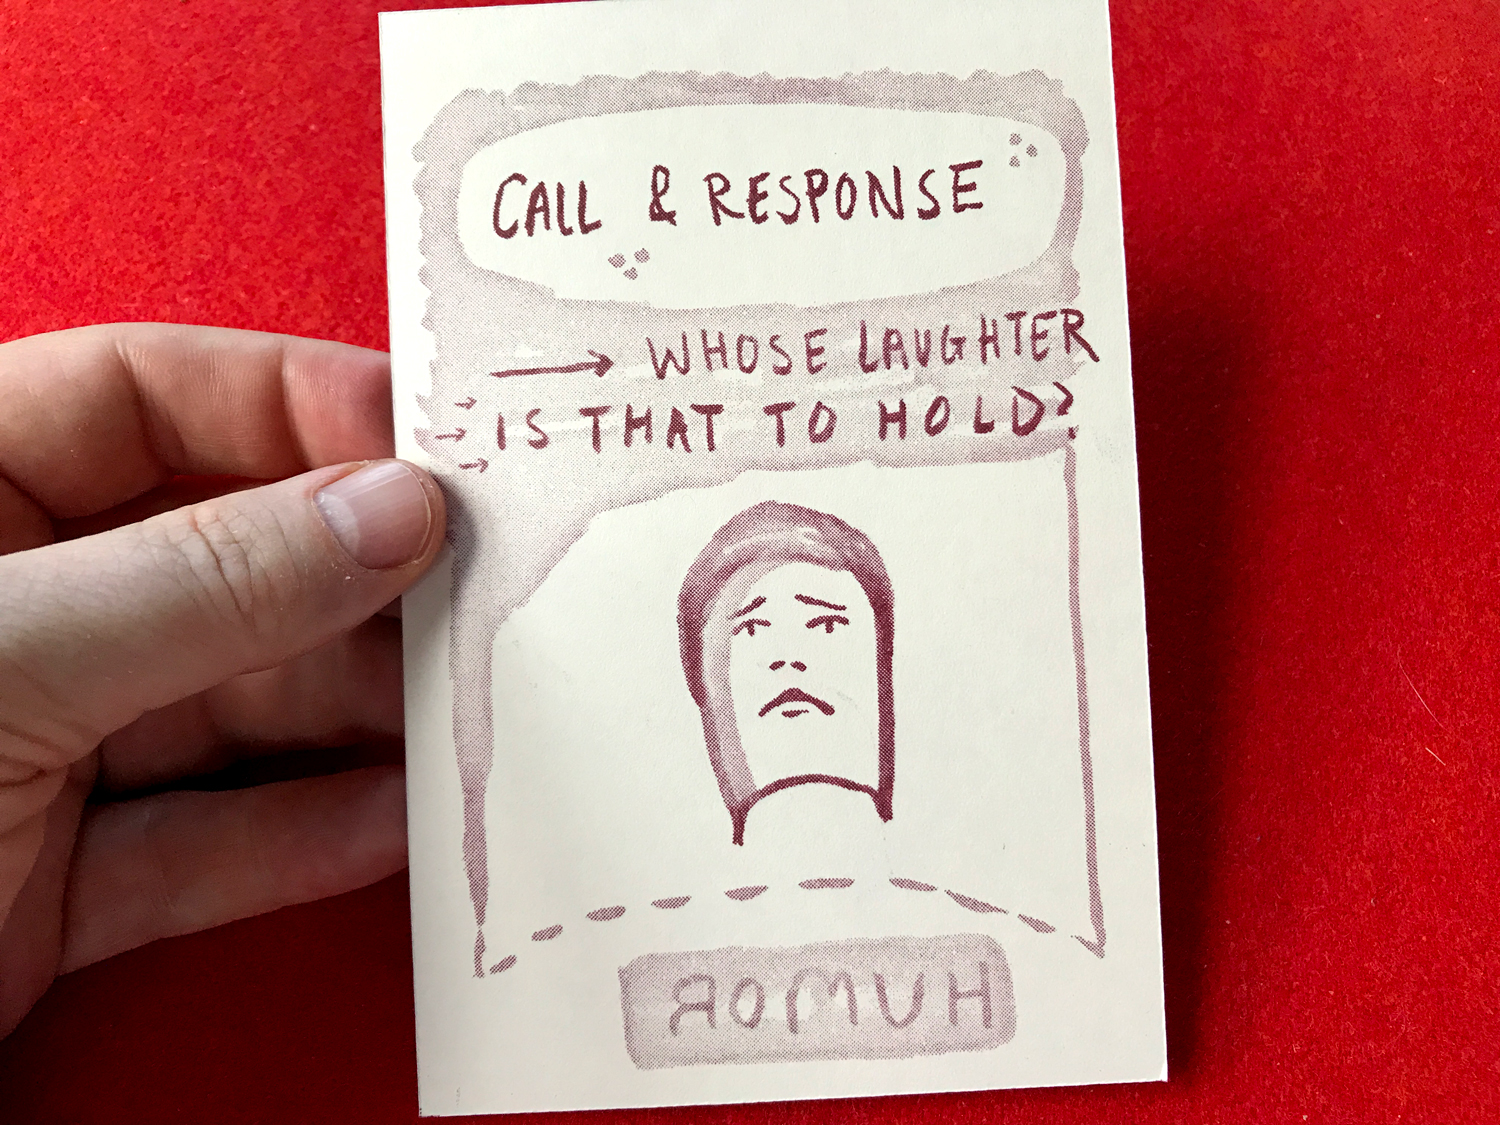 CALL & RESPONSE
→ WHOSE LAUGHTER
IS THAT TO HOLD?
HUMOR